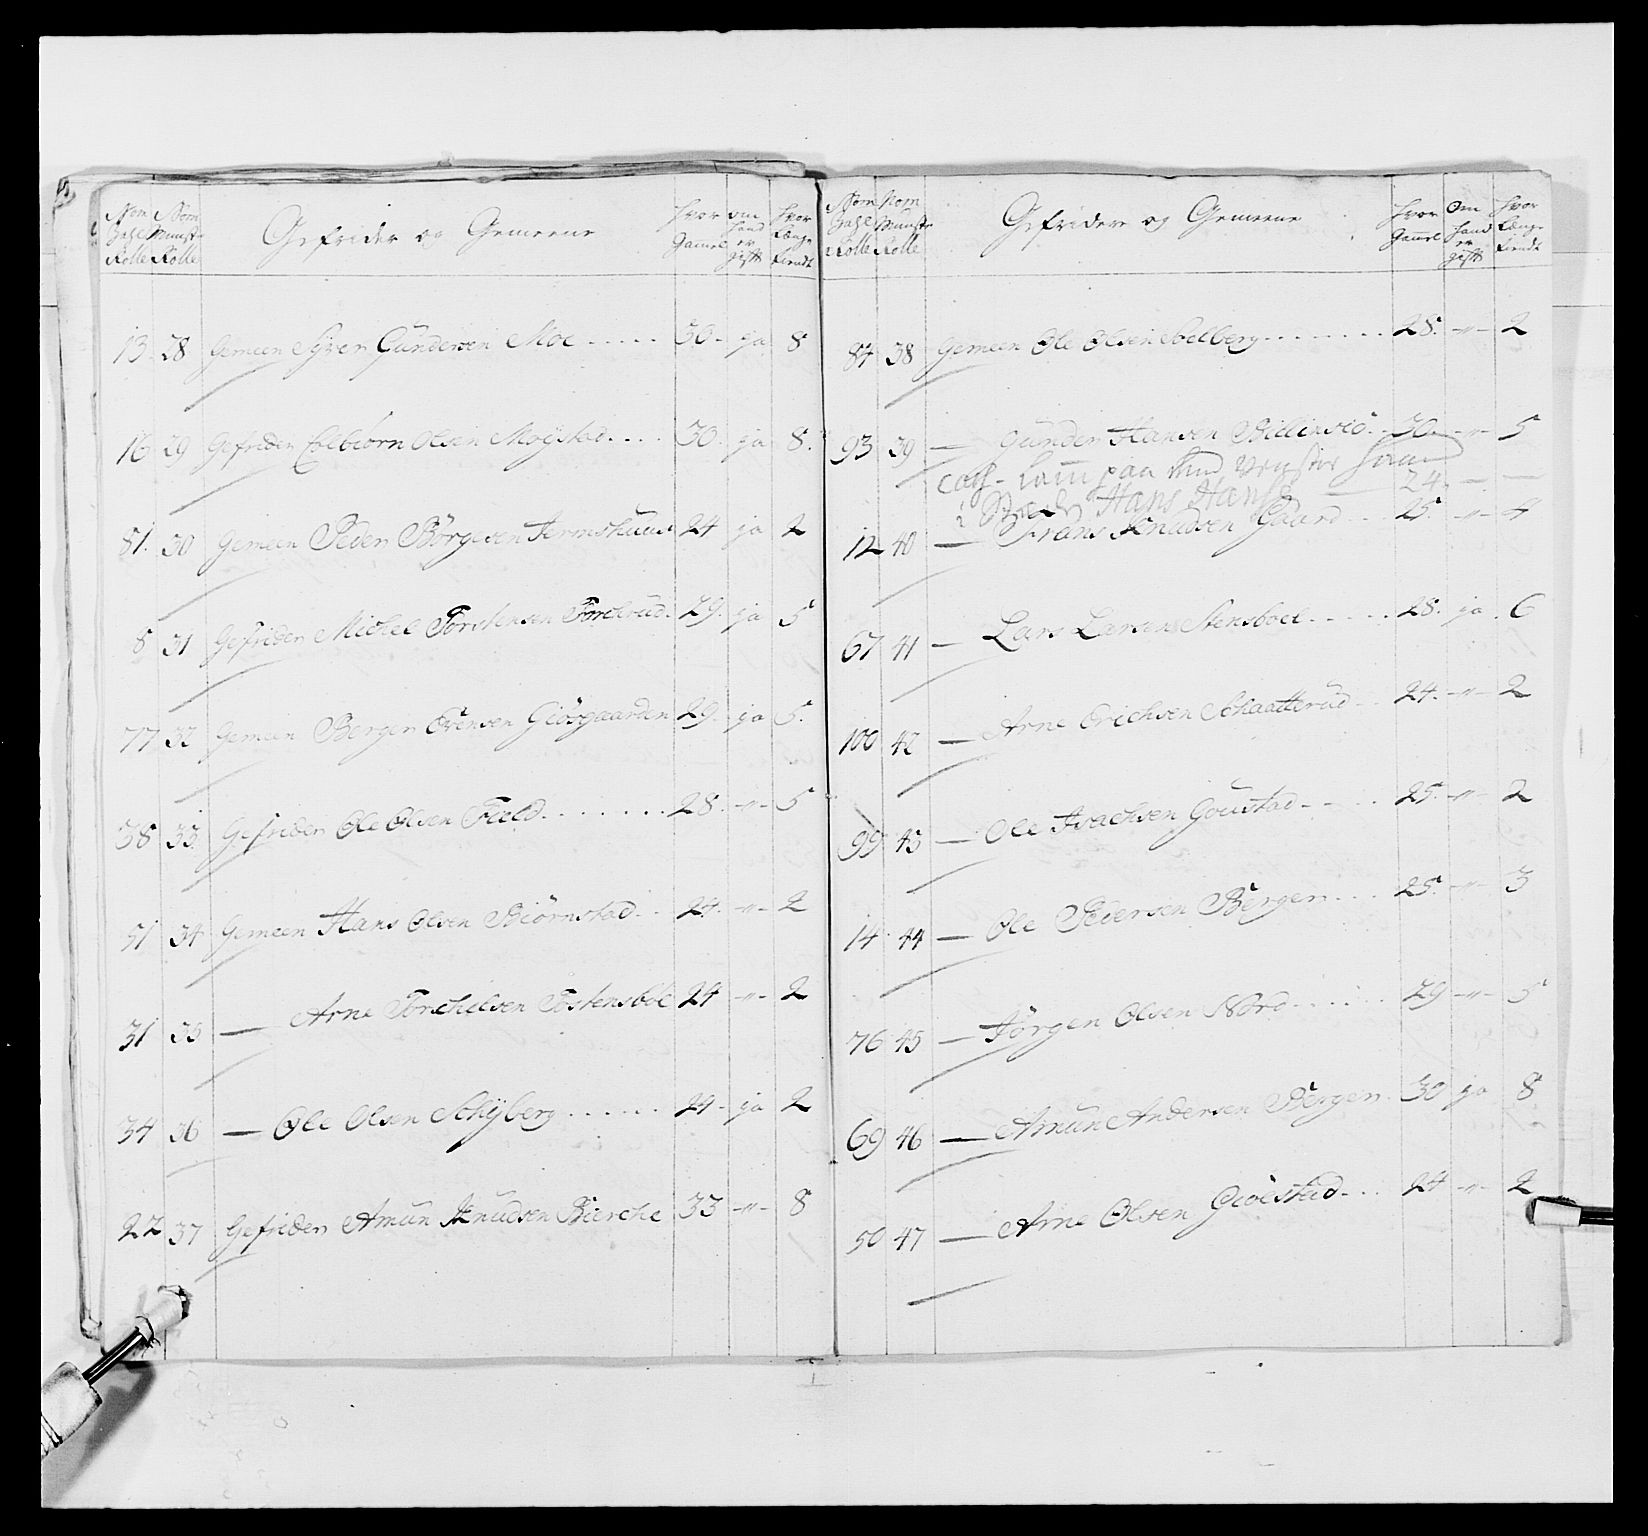 Nom Zahl Rolle | Nom Munst Rolle | Gefrider og Gemeene | hvor Gamel | om hand er gift | hvor Længe tient
13 28 Gemeen Syver Gundersen Moe ..... 30 - ja 8
16 29 Gefrider Colbiørn Olsen Moystad .... 30 . ja 8.
81. 30 Gemeen Peder Børgesen Jermshuus 24 ja 2
8 31 Gefrider Michel Torstensen Torchrud . 29 . ja 5
77 32 Gemeen Berger Evensen Giösgaarden 29 . ja 5.
38 33 Gefrider Ole Olsen Field ....... 28 . -"- 5
51 34 Gemeen Hans Olsen Biörnstad .. 24 . -"- 2
31 35 — Arne Torchelsen Tostensböl 24 -"- 2
34 36 — Ole Olsen Schyberg ...... 24 - ja 2
22 37 Gefrider Amun Knudsen Bierche 33 -"- 8
Nom Zahl Rolle | Nom Munstr Rolle | Gefridere og Gemeene | hvor Gamel | Om hand er gift | hvor Længe tiendt
84 38 Gemeen Ole Olsen Solberg ........ 28. -"- 2
93 39 — Gunder Hansen Billinsiö . 30. -"- 5
paa venster
i Hans Hans — 24. - —
12 40 — Frans Knudsen Gaard .. 25. -"- 4
67 41 — Lars Larsen Stensboel ..... 28. ja . 6
100 42 — Arne Erichsen Schaatterud .. 24. -"- 2
99 43 — Ole Isachsen Goustad .... 25. -"- 2
14 44 — Ole Pedersen Bergen .... 25. -"- 3
76 45 — Jörgen Olsen Nord ...... 29 -"- 5
69 46 — Amun Andersen Bergen . 30 ja 8
50 47 — Arne Olsen Giölstad ... 24 -"- 2